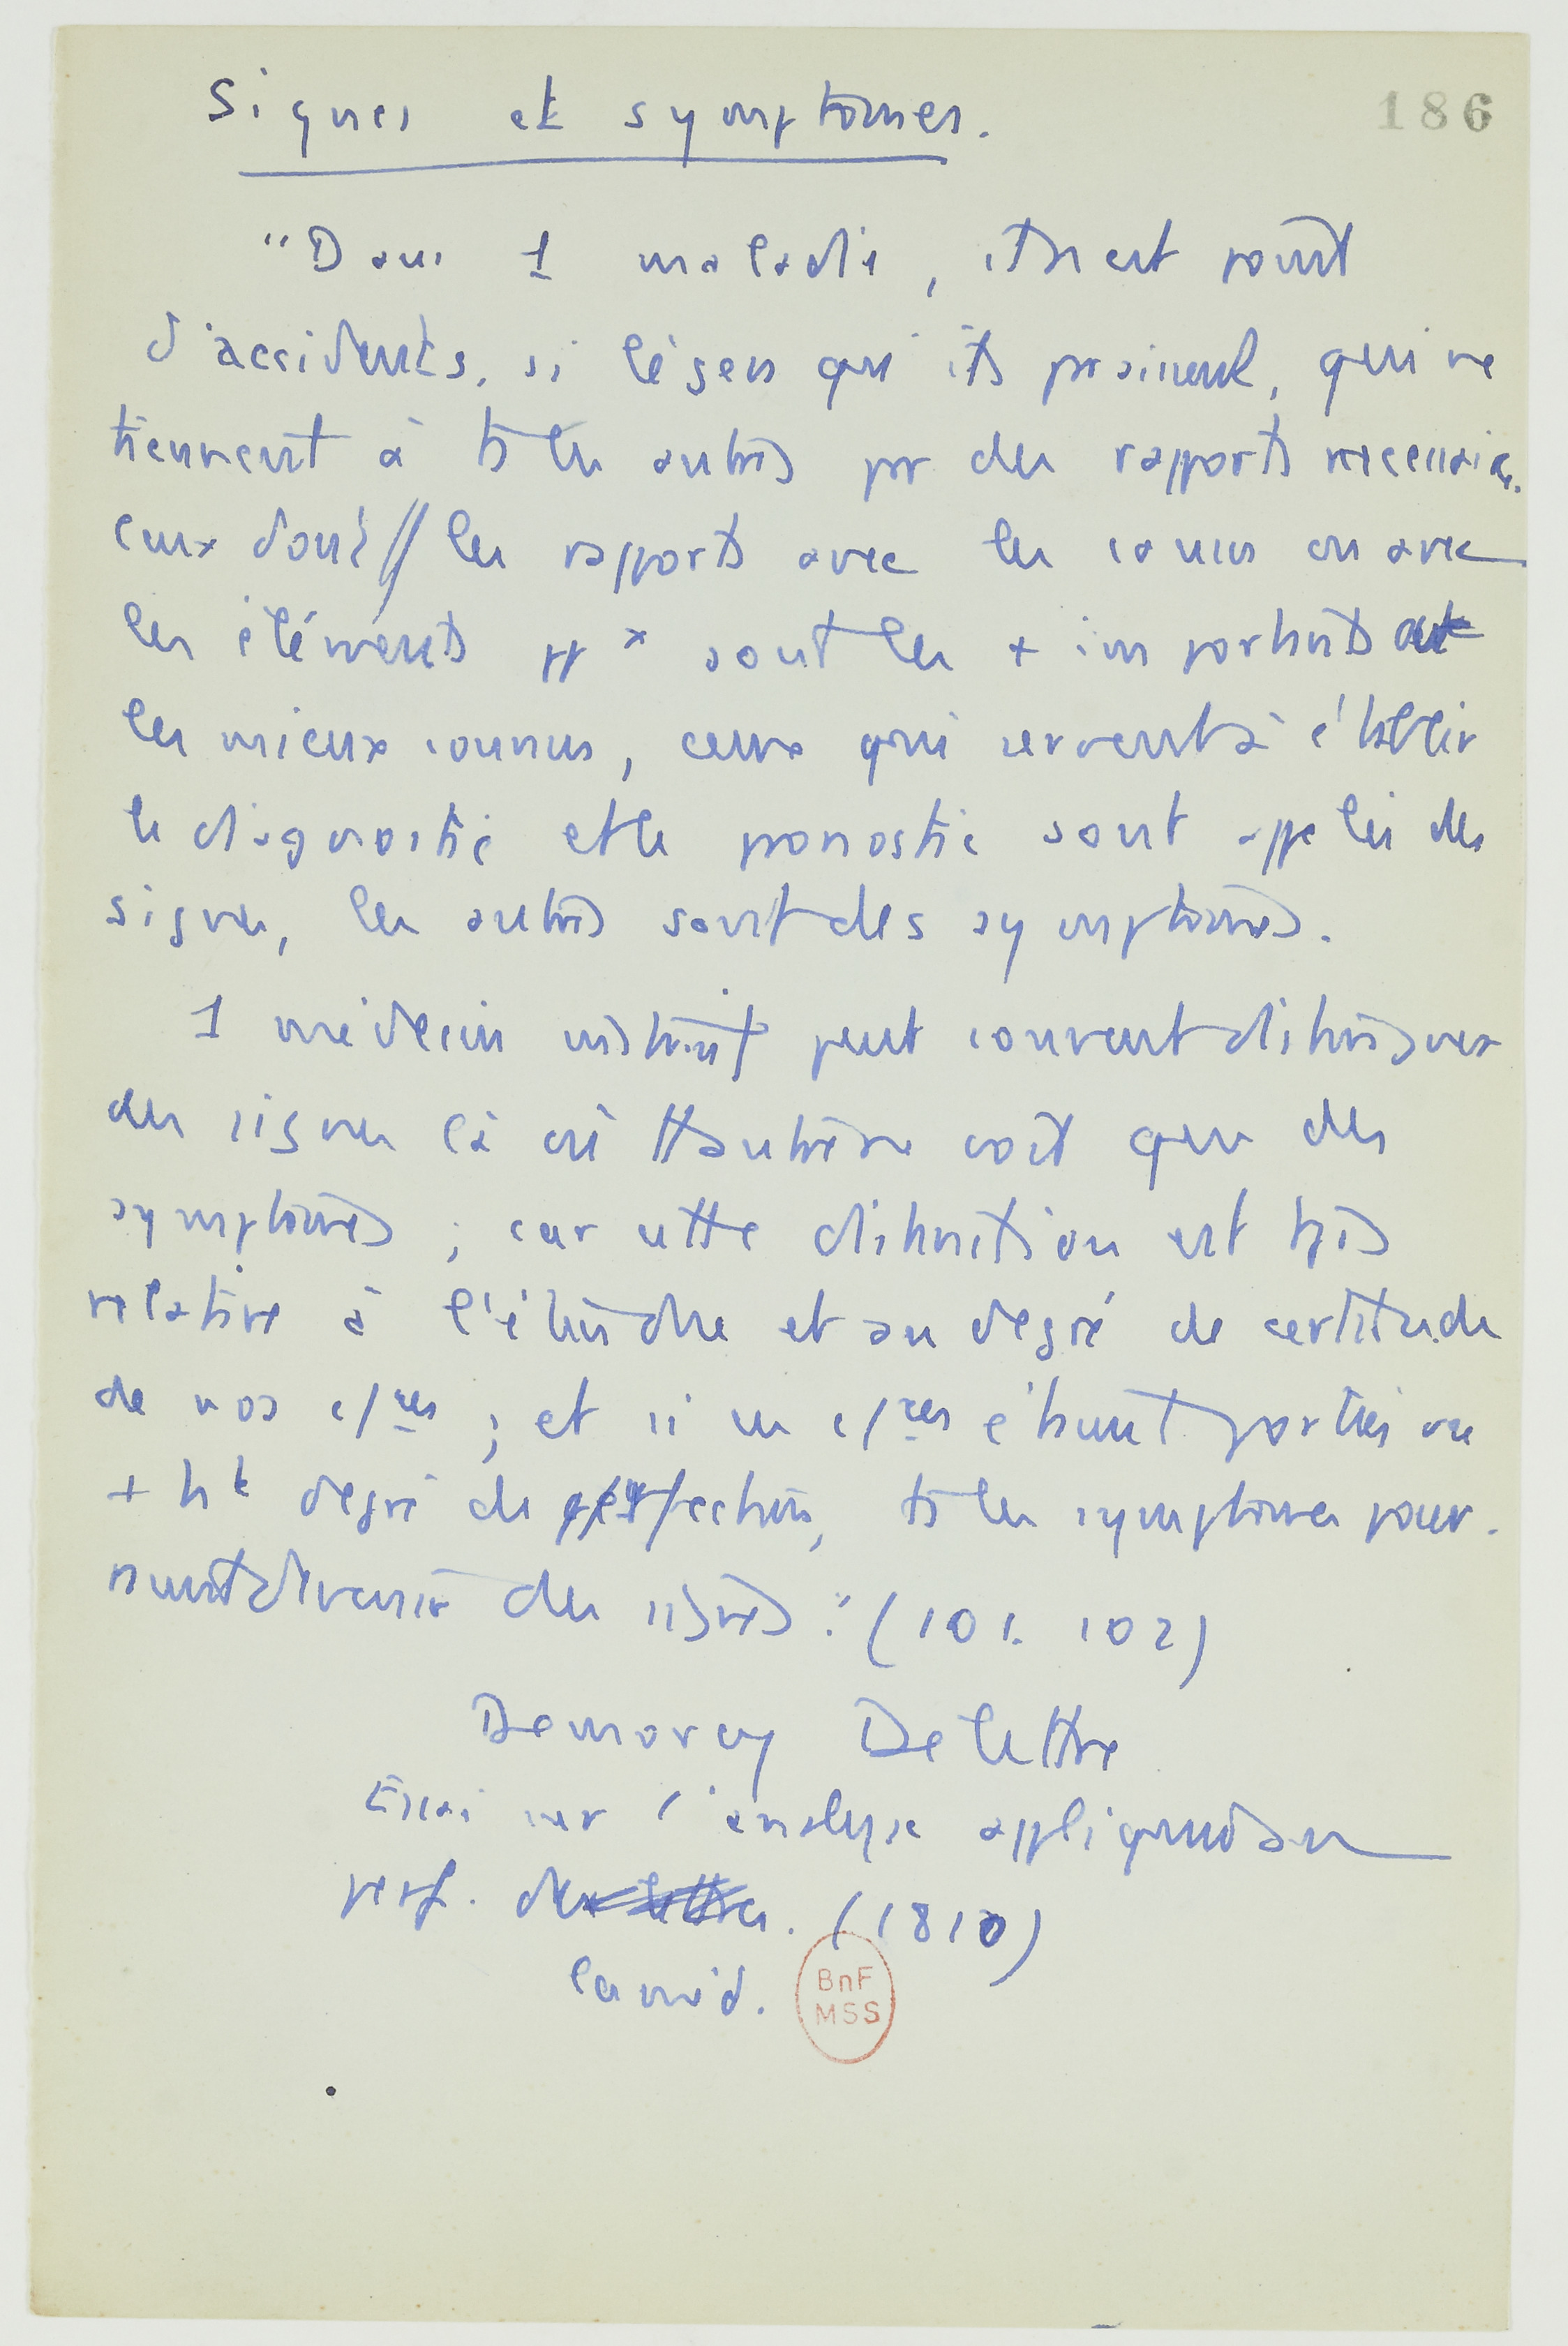 Signes et symptômes.
186
"Dans 1 maladie, il n'est point
d'accidents, si légers qu'ils paraissent, qui ne
tiennent à ts les autres pr des rapports nécessaires.
Ceux dont les rapports avec les causes ou avec
les éléments ppx sont les + importants et
les mieux connus, ceux qui servent à établir
le diagnostic et le pronostic sont appelés des
signes, les autres sont des symptômes.
1 médecin instruit peut souvent distinguer
des signes là où tt autre ne voit que des
symptômes ; car cette distinction est très
relative à l'étendue et au degré de certitude
de nos c/res ; et si ces c/res étaient portées au
+ ht degré de perfection, ts les symptômes pour-
raient devenir des signes." (101. 102)
Demorcy Delettre
Essai sur l'analyse appliquée au
perf. des lettres. (1810)
la méd.
BnF
MSS